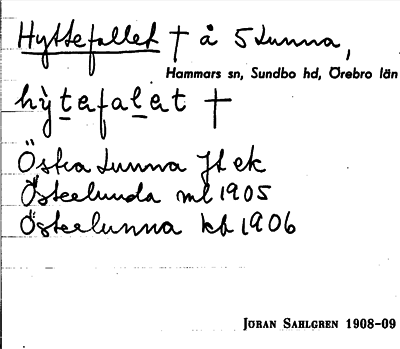 Hyttefallet † å Sunna,
Hammars sn, Sundbo hd, Örebro län
hỳtefalet †
Östra Sunna Jt ek
Östelunda ml 1905
Östelunna kb 1906
JÖRAN SAHLGREN 1908-09